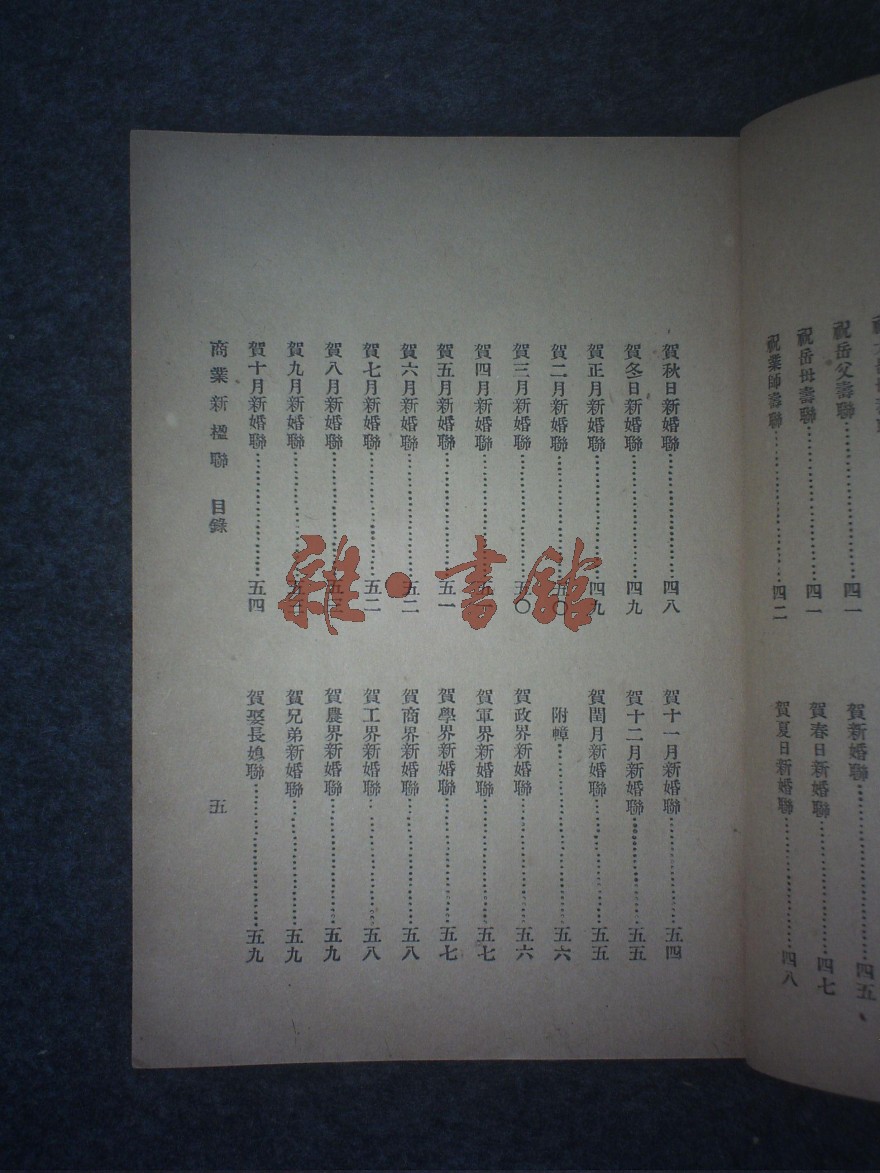 祝岳父壽聯…………四一
祝岳母壽聯…………四一
祝業師壽聯…………四二
賀新婚聯…………四五
賀春日新婚聯…………四七
賀夏日新婚聯…………四八
賀秋日新婚聯…………四八
賀冬日新婚聯…………四九
賀正月新婚聯…………四九
賀二月新婚聯…………五〇
賀三月新婚聯…………五〇
賀四月新婚聯…………五一
賀五月新婚聯…………五一
賀六月新婚聯…………五二
賀七月新婚聯…………五二
賀八月新婚聯…………五三
賀九月新婚聯…………五三
賀十月新婚聯…………五四
賀十一月新婚聯…………五四
賀十二月新婚聯…………五五
賀閏月新婚聯…………五五
附幛…………五六
賀政界新婚聯…………五六
賀軍界新婚聯…………五七
賀學界新婚聯…………五七
賀商界新婚聯…………五八
賀工界新婚聯…………五八
賀農界新婚聯…………五九
賀兄弟新婚聯…………五九
賀娶長媳聯…………五九
商業新楹聯 目錄 五
雜·書館